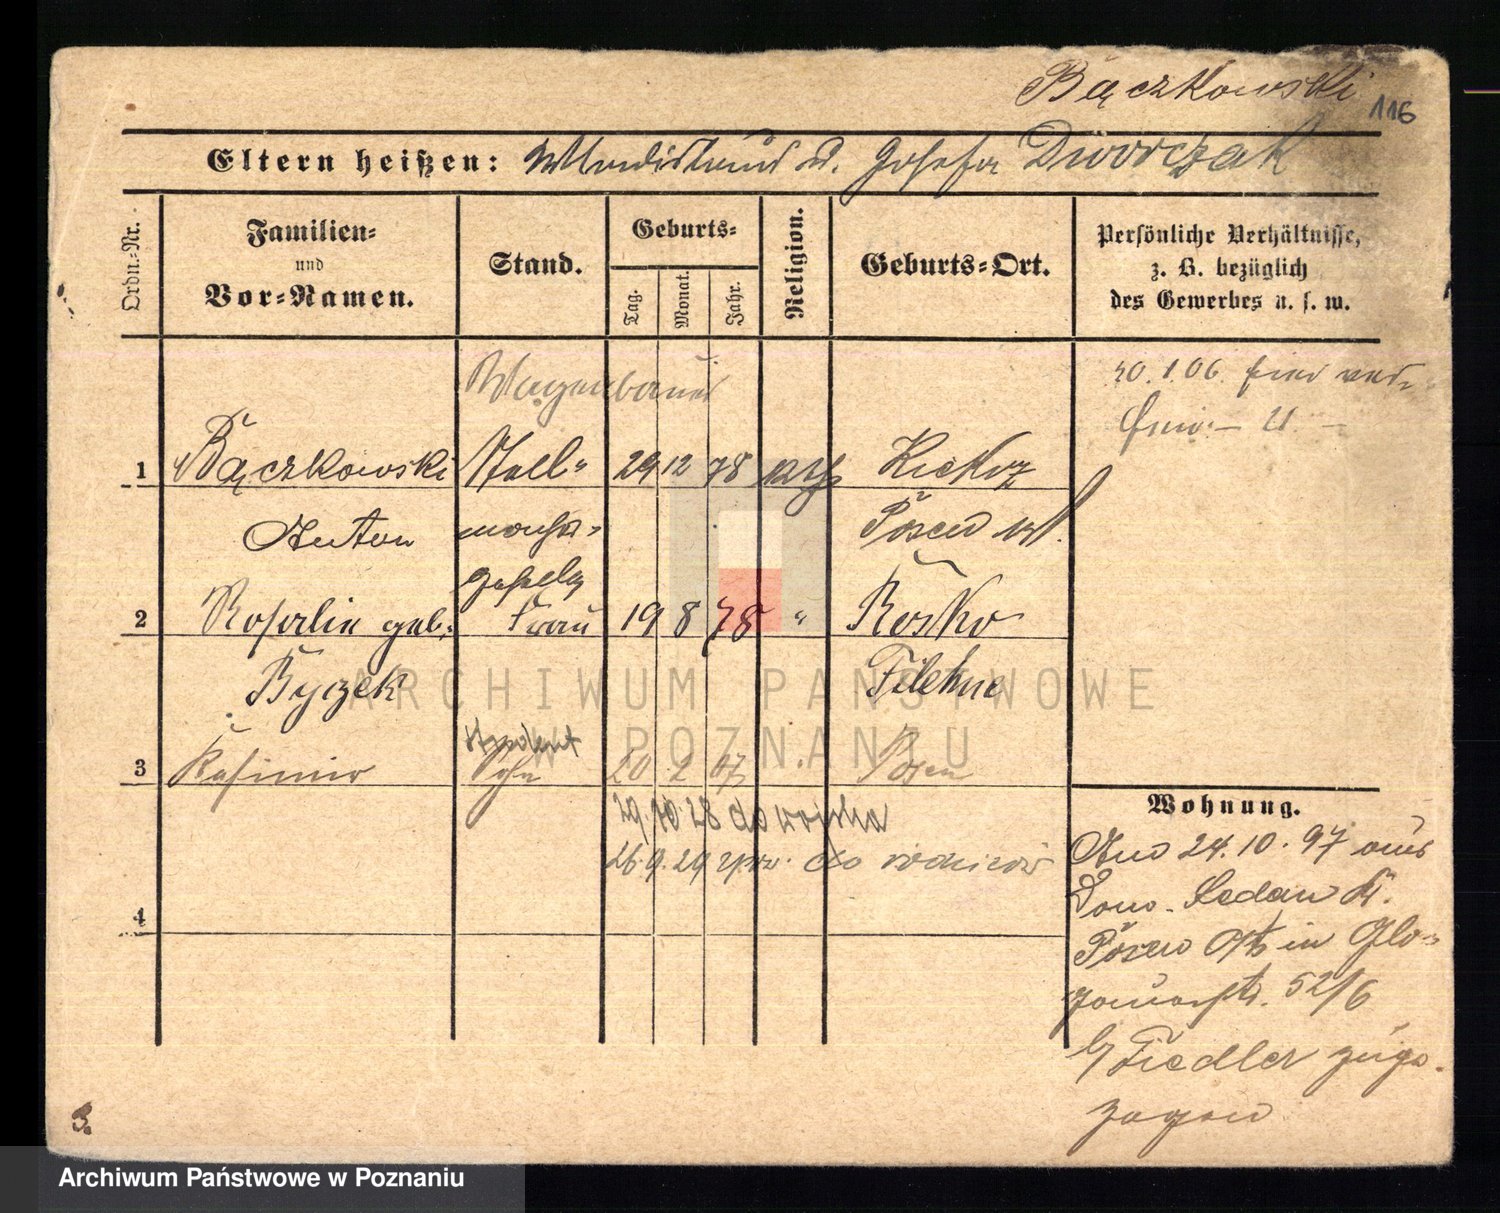 Bączkowski
116
Eltern heißen: Wladislaus u. Josefa Dworczak
Ordn.-Nr.
Familien-
und
Vor-Namen.
Stand.
Geburts-
Tag.
Monat.
Jahr.
Religion.
Geburts-Ort.
Persönliche Verhältnisse,
z. B. bezüglich
des Gewerbes u. s. w.
Wagenbauer
20.1.06.
1 Bączkowski Stell- 29 12 78 Kiekrz
Anton macher- Posen W.
geselle
2 Rosalie geb. Frau 19 8 78 " Rosko
Byczek Filehne
student
3 Kasimir Sohn 20 2 07 Posen
29.10.28 do wojska
26.9.29 do rodziców
4
Wohnung.
Am 24.10.97 aus
Dom. Sedan Kr.
Posen O. in Glo-
gauerstr. 52/6
b/ Fiedler zuge-
zogen
3.
ARCHIWUM PAŃSTWOWE
W POZNANIU
Archiwum Państwowe w Poznaniu